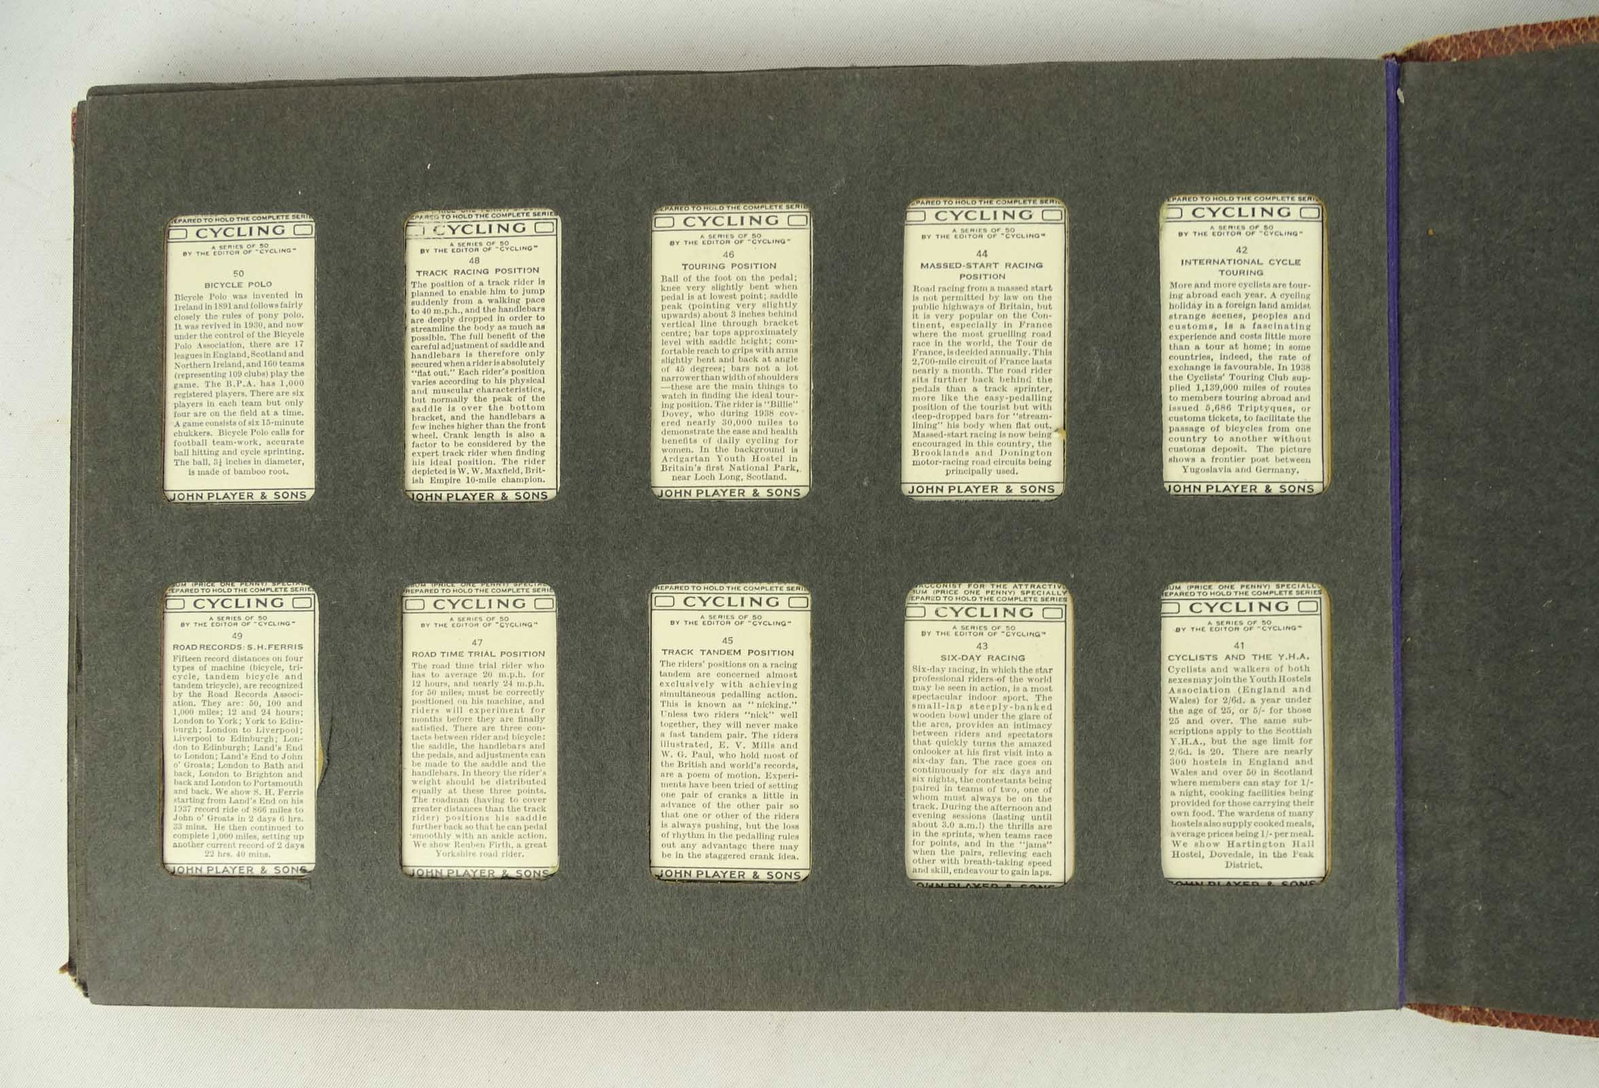 EPARED TO HOLD THE COMPLETE SERI
CYCLING
A SERIES OF 50
BY THE EDITOR OF "CYCLING"
50
BICYCLE POLO
Bicycle Polo was invented in
Ireland in 1891 and follows fairly
closely the rules of pony polo.
It was revived in 1930, and now
under the control of the Bicycle
Polo Association, there are 17
leagues in England, Scotland and
Northern Ireland, and 160 teams
(representing 109 clubs) play the
game. The B.P.A. has 1,000
registered players. There are six
players in each team but only
four are on the field at a time.
A game consists of six 15-minute
chukkers. Bicycle Polo calls for
football team-work, accurate
ball hitting and cycle sprinting.
The ball, 3¼ inches in diameter,
is made of bamboo root.
JOHN PLAYER & SONS
EPARED TO HOLD THE COMPLETE SERIE
CYCLING
A SERIES OF 50
BY THE EDITOR OF "CYCLING"
48
TRACK RACING POSITION
The position of a track rider is
planned to enable him to jump
suddenly from a walking pace
to 40 m.p.h., and the handlebars
are deeply dropped in order to
streamline the body as much as
possible. The full benefit of the
careful adjustment of saddle and
handlebars is therefore only
secured when a rider is absolutely
"flat out." Each rider's position
varies according to his physical
and muscular characteristics,
but normally the peak of the
saddle is over the bottom
bracket, and the handlebars a
few inches higher than the front
wheel. Crank length is also a
factor to be considered by the
expert track rider when finding
his ideal position. The rider
depicted is W. W. Maxfield, Brit-
ish Empire 10-mile champion.
JOHN PLAYER & SONS
EPARED TO HOLD THE COMPLETE SERI
CYCLING
A SERIES OF 50
BY THE EDITOR OF "CYCLING"
46
TOURING POSITION
Ball of the foot on the pedal;
knee very slightly bent when
pedal is at lowest point; saddle
peak (pointing very slightly
upwards) about 3 inches behind
vertical line through bracket
centre; bar tops approximately
level with saddle height; com-
fortable reach to grips with arms
slightly bent and back at angle
of 45 degrees; bars not a lot
narrower than width of shoulders
—these are the main things to
watch in finding the ideal tour-
ing position. The rider is "Billie"
Dovey, who during 1938 cov-
ered nearly 30,000 miles to
demonstrate the ease and health
benefits of daily cycling for
women. In the background is
Ardgartan Youth Hostel in
Britain's first National Park,
near Loch Long, Scotland.
JOHN PLAYER & SONS
EPARED TO HOLD THE COMPLETE SERI
CYCLING
A SERIES OF 50
BY THE EDITOR OF "CYCLING"
44
MASSED-START RACING
POSITION
Road racing from a massed start
is not permitted by law on the
public highways of Britain, but
it is very popular on the Con-
tinent, especially in France
where the most gruelling road
race in the world, the Tour de
France, is decided annually. This
2,700-mile circuit of France lasts
nearly a month. The road rider
sits further back behind the
pedals than a track sprinter,
more like the easy-pedalling
position of the tourist but with
deep-dropped bars for "stream-
lining" his body when flat out.
Massed-start racing is now being
encouraged in this country, the
Brooklands and Donington
motor-racing road circuits being
principally used.
JOHN PLAYER & SONS
EPARED TO HOLD THE COMPLETE SERI
CYCLING
A SERIES OF 50
BY THE EDITOR OF "CYCLING"
42
INTERNATIONAL CYCLE
TOURING
More and more cyclists are tour-
ing abroad each year. A cycling
holiday in a foreign land amidst
strange scenes, peoples and
customs, is a fascinating
experience and costs little more
than a tour at home; in some
countries, indeed, the rate of
exchange is favourable. In 1938
the Cyclists' Touring Club sup-
plied 1,139,000 miles of routes
to members touring abroad and
issued 5,686 Triptyques, or
customs tickets, to facilitate the
passage of bicycles from one
country to another without
customs deposit. The picture
shows a frontier post between
Yugoslavia and Germany.
JOHN PLAYER & SONS
UM (PRICE ONE PENNY) SPECIAL
EPARED TO HOLD THE COMPLETE SERIE
CYCLING
A SERIES OF 50
BY THE EDITOR OF "CYCLING"
49
ROAD RECORDS: S. H. FERRIS
Fifteen record distances on four
types of machine (bicycle, tri-
cycle, tandem bicycle and
tandem tricycle), are recognized
by the Road Records Associ-
ation. They are: 50, 100 and
1,000 miles; 12 and 24 hours;
London to York; York to Edin-
burgh; London to Liverpool;
Liverpool to Edinburgh; Lon-
don to Edinburgh; Land's End
to London; Land's End to John
o' Groats; London to Bath and
back, London to Brighton and
back and London to Portsmouth
and back. We show S. H. Ferris
starting from Land's End on his
1937 record ride of 866 miles to
John o' Groats in 2 days 6 hrs.
33 mins. He then continued to
complete 1,000 miles, setting up
another current record of 2 days
22 hrs. 40 mins.
JOHN PLAYER & SONS
UM (PRICE ONE PENNY) SPECIAL
REPARED TO HOLD THE COMPLETE SERIE
CYCLING
A SERIES OF 50
BY THE EDITOR OF "CYCLING"
47
ROAD TIME TRIAL POSITION
The road time trial rider who
has to average 20 m.p.h. for
12 hours, and nearly 24 m.p.h.
for 50 miles, must be correctly
positioned on his machine, and
riders will experiment for
months before they are finally
satisfied. There are three con-
tacts between rider and bicycle:
the saddle, the handlebars and
the pedals, and adjustments can
be made to the saddle and the
handlebars. In theory the rider's
weight should be distributed
equally at these three points.
The roadman (having to cover
greater distances than the track
rider) positions his saddle
further back so that he can pedal
smoothly with an ankle action.
We show Reuben Firth, a great
Yorkshire road rider.
JOHN PLAYER & SONS
REPARED TO HOLD THE COMPLETE SERI
CYCLING
A SERIES OF 50
BY THE EDITOR OF "CYCLING"
45
TRACK TANDEM POSITION
The riders' positions on a racing
tandem are concerned almost
exclusively with achieving
simultaneous pedalling action.
This is known as "nicking."
Unless two riders "nick" well
together, they will never make
a fast tandem pair. The riders
illustrated, E. V. Mills and
W. G. Paul, who hold most of
the British and world's records,
are a poem of motion. Experi-
ments have been tried of setting
one pair of cranks a little in
advance of the other pair so
that one or other of the riders
is always pushing, but the loss
of rhythm in the pedalling rules
out any advantage there may
be in the staggered crank idea.
JOHN PLAYER & SONS
ACCONIST FOR THE ATTRACTIV
BUM (PRICE ONE PENNY) SPECIALLY
EPARED TO HOLD THE COMPLETE SERIES
CYCLING
A SERIES OF 50
BY THE EDITOR OF "CYCLING"
43
SIX-DAY RACING
Six-day racing, in which the star
professional riders of the world
may be seen in action, is a most
spectacular indoor sport. The
small-lap steeply-banked
wooden bowl under the glare of
the arcs, provides an intimacy
between riders and spectators
that quickly turns the amazed
onlooker at his first visit into a
six-day fan. The race goes on
continuously for six days and
six nights, the contestants being
paired in teams of two, one of
whom must always be on the
track. During the afternoon and
evening sessions (lasting until
about 3.0 a.m.!) the thrills are
in the sprints, when teams race
for points, and in the "jams"
when the pairs, relieving each
other with breath-taking speed
and skill, endeavour to gain laps.
JOHN PLAYER & SONS
UM (PRICE ONE PENNY) SPECIALL
EPARED TO HOLD THE COMPLETE SERIES
CYCLING
A SERIES OF 50
BY THE EDITOR OF "CYCLING"
41
CYCLISTS AND THE Y.H.A.
Cyclists and walkers of both
sexes may join the Youth Hostels
Association (England and
Wales) for 2/6d. a year under
the age of 25, or 5/- for those
25 and over. The same sub-
scriptions apply to the Scottish
Y.H.A., but the age limit for
2/6d. is 20. There are nearly
300 hostels in England and
Wales and over 50 in Scotland
where members can stay for 1/-
a night, cooking facilities being
provided for those carrying their
own food. The wardens of many
hostels also supply cooked meals,
average prices being 1/- per meal.
We show Hartington Hall
Hostel, Dovedale, in the Peak
District.
JOHN PLAYER & SONS